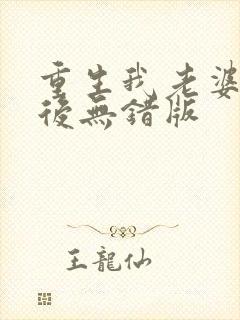 重生我老婆
後無錯版
王龍仙